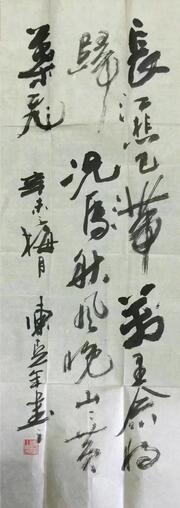 長江悲已滯萬里念將
歸况屬秋風晚山山黃
葉飛辛未梅月東年書